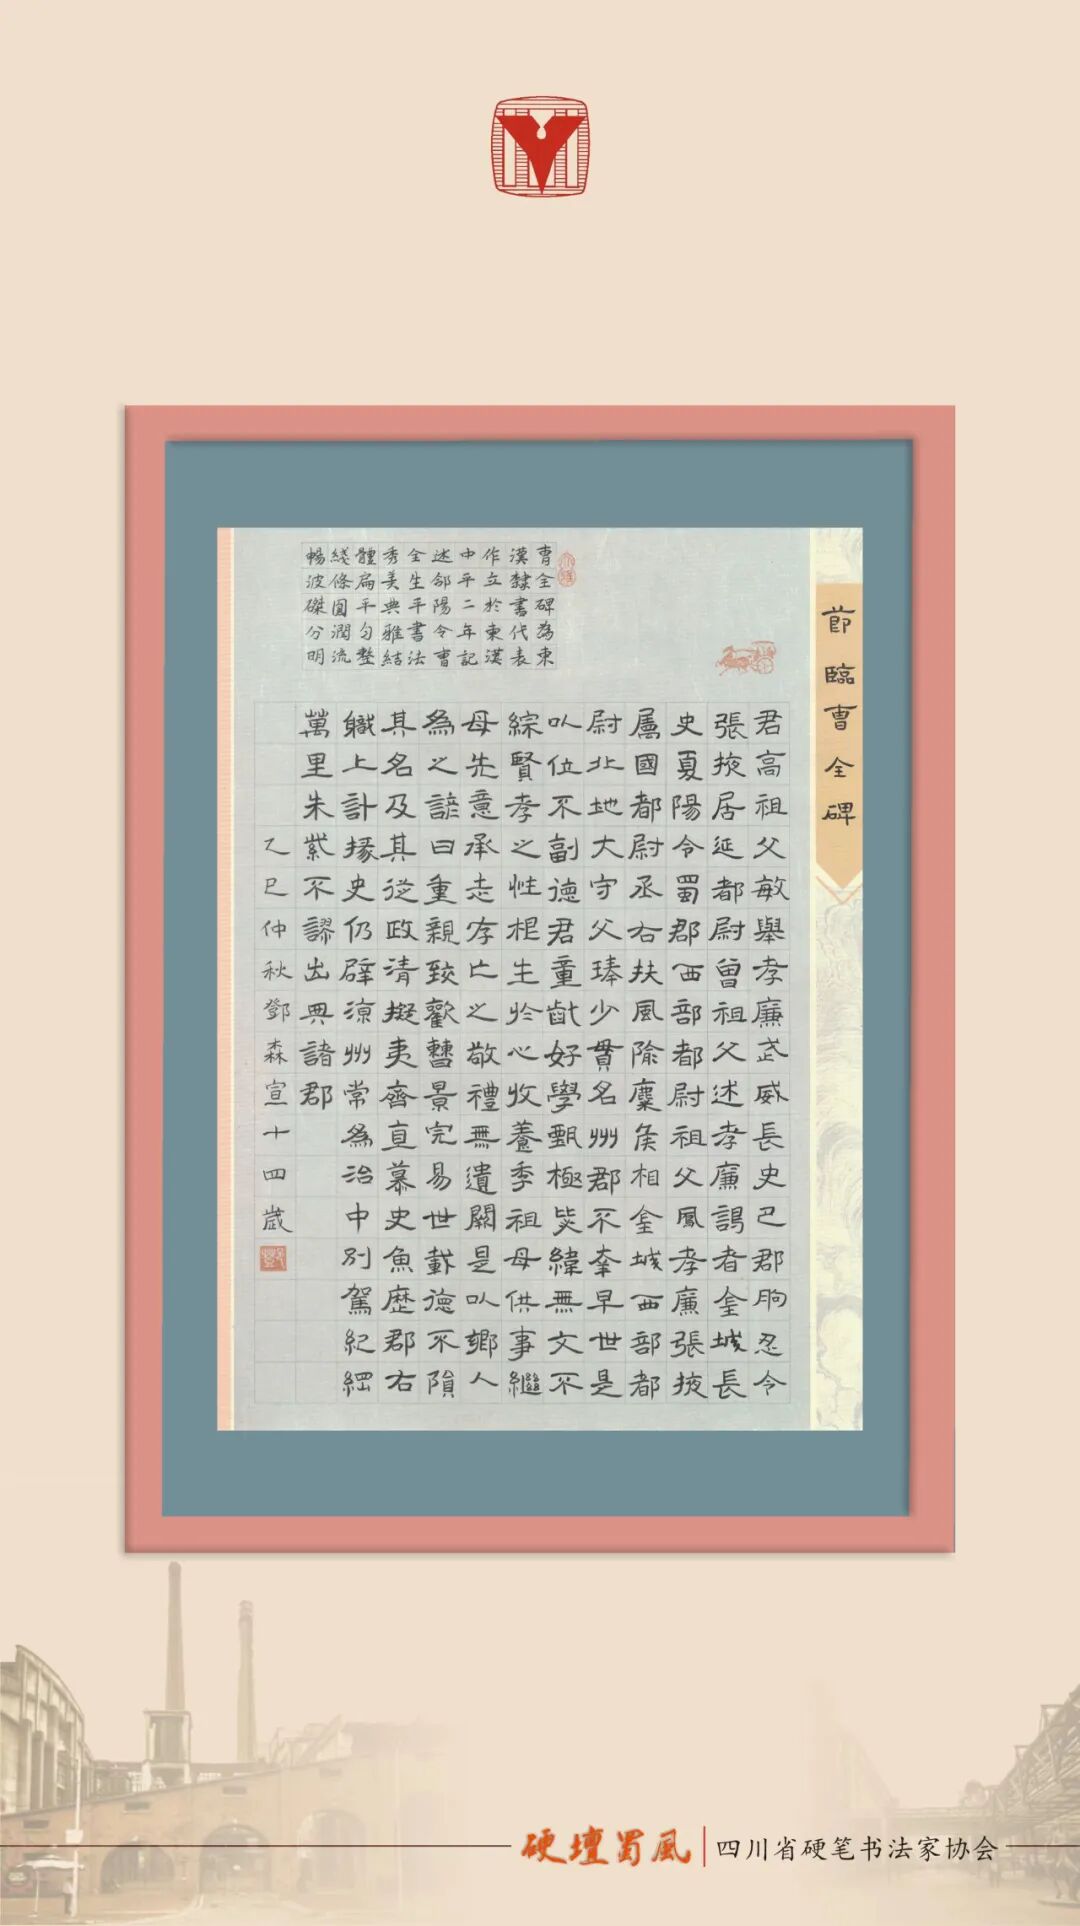 節臨曹全碑
曹全碑為東
漢隸書代表
作立於東漢
中平二年記
述郃陽令曹
全生平書法
秀美典雅結
體扁平勻整
綫條圓潤流
暢波磔分明
君高祖父敏舉孝廉武威長史巴郡朐忍令
張掖居延都尉曾祖父述孝廉謁者金城長
史夏陽令蜀郡西部都尉祖父鳳孝廉張掖
屬國都尉丞右扶風隃麋侯相金城西部都
尉北地大守父琫少貫名州郡不幸早世是
以位不副德君童齓好學甄極毖緯無文不
綜賢孝之性根生於心收養季祖母供事繼
母先意承志存亡之敬禮無遺闕是以鄉人
為之諺曰重親致歡曹景完易世載德不隕
其名及其從政清擬夷齊直慕史魚歷郡右
職上計掾史仍辟涼州常為治中別駕紀綱
萬里朱紫不謬出典諸郡
乙巳仲秋鄧森宣十四歲
硬壇蜀風 四川省硬笔书法家协会